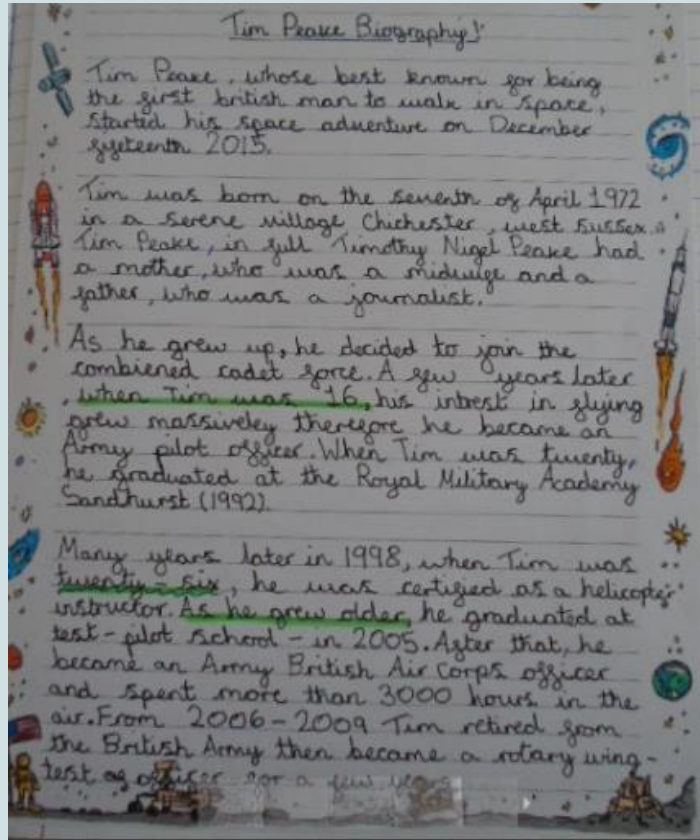 Tim Peake Biography!
Tim Peake, whose best known for being
the first british man to walk in space,
started his space adventure on December
fyfteenth 2015.
Tim was born on the seventh of April 1972
in a serene village Chichester, west sussex.
Tim Peake, in full Timothy Nigel Peake had
a mother, who was a midwife and a
father, who was a journalist.
As he grew up, he decided to join the
combiened cadet force. A few years later
, when Tim was 16, his intrest in flying
grew massiveley therefore he became an
Army pilot officer. When Tim was twenty,
he graduated at the Royal Military Academy
Sandhurst (1992)
Many years later in 1998, when Tim was
twenty-six, he was certified as a helicopter
instructor. As he grew older, he graduated at
test-pilot school - in 2005. After that, he
became an Army British Air Corps officer
and spent more than 3000 hours in the
air. From 2006-2009 Tim retired from
the British Army then became a rotary wing-
test of officer for a few years